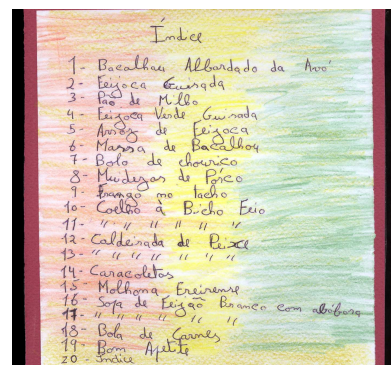 Índice
1- Bacalhau Albardado da Avó
2- Feijoca Guisada
3- Pão de Milho
4- Feijoca Verde Guisada
5- Arroz de Feijoca
6- Massa de Bacalhau
7- Bolo de chouriço
8- Miudezas de Porco
9- Frango no tacho
10- Coelho à Bicho Feio
11- " " " " "
12- Caldeirada de Peixe
13- " " " " "
14- Caracoletas
15- Molhona Ereirense
16- Sopa de Feijão Branco com abóbora
17- " " " " "
18- Bola de Carnes
19- Bom Apetite
20- Índice